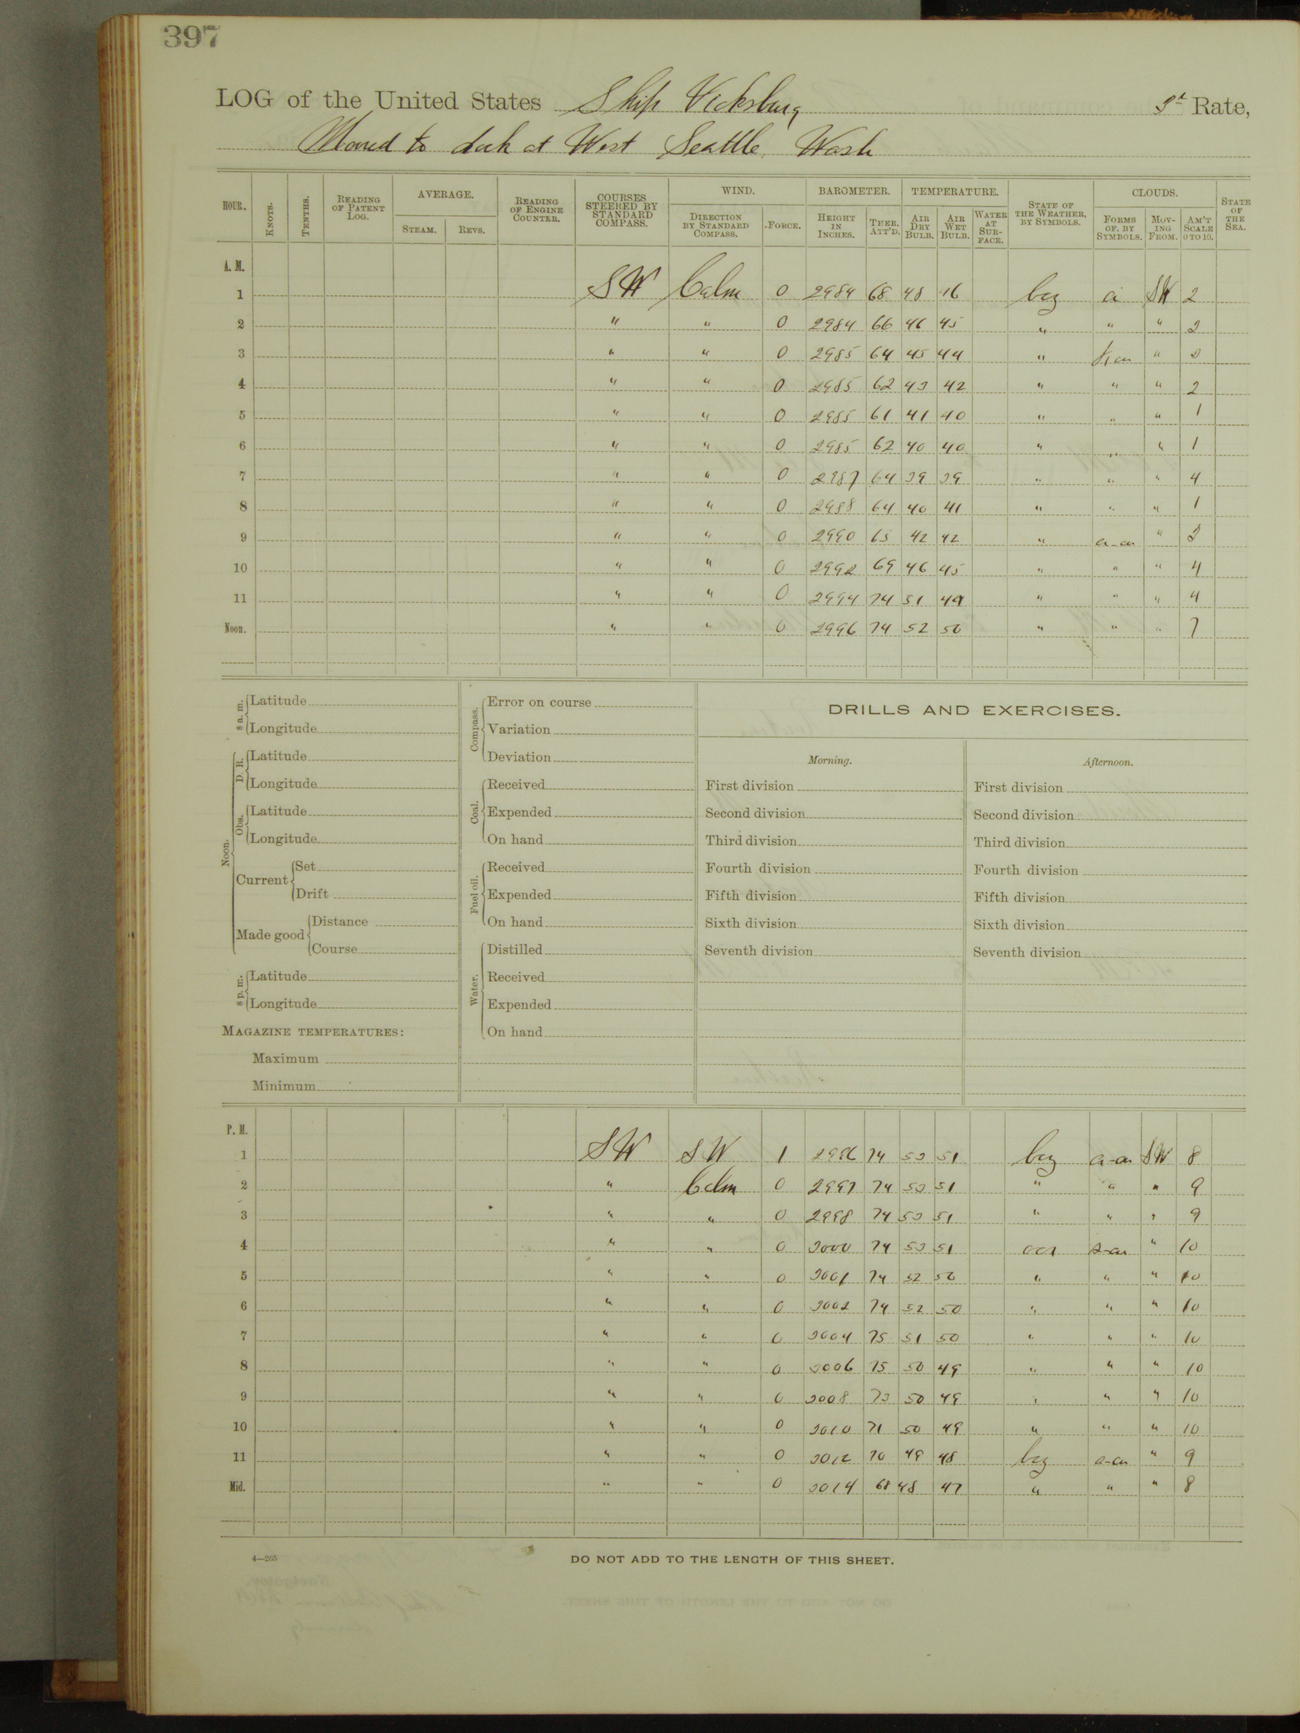 397
LOG of the United States Ship Vicksburg 3d Rate,
Moored to dock at West Seattle, Wash
HOUR. KNOTS. TENTHS. READING OF PATENT LOG. AVERAGE. STEAM. REVS. READING OF ENGINE COUNTER. COURSES STEERED BY STANDARD COMPASS. WIND. DIRECTION BY STANDARD COMPASS. FORCE. BAROMETER. HEIGHT IN INCHES. THER. ATT'D. TEMPERATURE. AIR DRY BULB. AIR WET BULB. WATER AT SURFACE. STATE OF THE WEATHER, BY SYMBOLS. CLOUDS. FORMS OF, BY SYMBOLS. MOVING FROM. AM'T SCALE 0 TO 10. STATE OF THE SEA.
A. M.
1 SW Calm 0 2984 68 48 46 bcz ci SW 2
2 " " 0 2984 66 46 45 " " " 2
3 " " 0 2985 64 45 44 " "
4 " " 0 2985 62 43 42 " " " 2
5 " " 0 2985 61 41 40 " " " 1
6 " " 0 2985 62 40 40 " " " 1
7 " " 0 2987 64 39 39 " " " 4
8 " " 0 2988 64 40 41 " " " 1
9 " " 0 2990 65 42 42 " a-cu " 2
10 " " 0 2992 69 46 45 " " " 4
11 " " 0 2994 74 51 49 " " " 4
Noon. " " 0 2996 74 52 50 " " " 7
8 a. m. Latitude
Longitude
Noon. D. R. Latitude
Longitude
Obs. Latitude
Longitude
Current Set
Drift
Made good Distance
Course
8 p. m. Latitude
Longitude
MAGAZINE TEMPERATURES:
Maximum
Minimum
Compass. Error on course
Variation
Deviation
Coal. Received
Expended
On hand
Fuel oil. Received
Expended
On hand
Water. Distilled
Received
Expended
On hand
DRILLS AND EXERCISES.
Morning.
First division
Second division
Third division
Fourth division
Fifth division
Sixth division
Seventh division
Afternoon.
First division
Second division
Third division
Fourth division
Fifth division
Sixth division
Seventh division
P. M.
1 SW SW 1 2996 74 53 51 bcz a-cu SW 8
2 " Calm 0 2997 74 53 51 " " " 9
3 " " 0 2998 74 53 51 " " " 9
4 " " 0 3000 74 53 51 " 10
5 " " 0 3001 74 52 50 " " " 10
6 " " 0 3002 74 52 50 " " " 10
7 " " 0 3004 75 51 50 " " " 10
8 " " 0 3006 75 50 49 " " " 10
9 " " 0 3008 73 50 49 " " " 10
10 " " 0 3010 71 50 49 " " " 10
11 " " 0 3012 70 49 48 bcz a-cu " 9
Mid. " " 0 3014 68 48 47 " " " 8
4—265
DO NOT ADD TO THE LENGTH OF THIS SHEET.